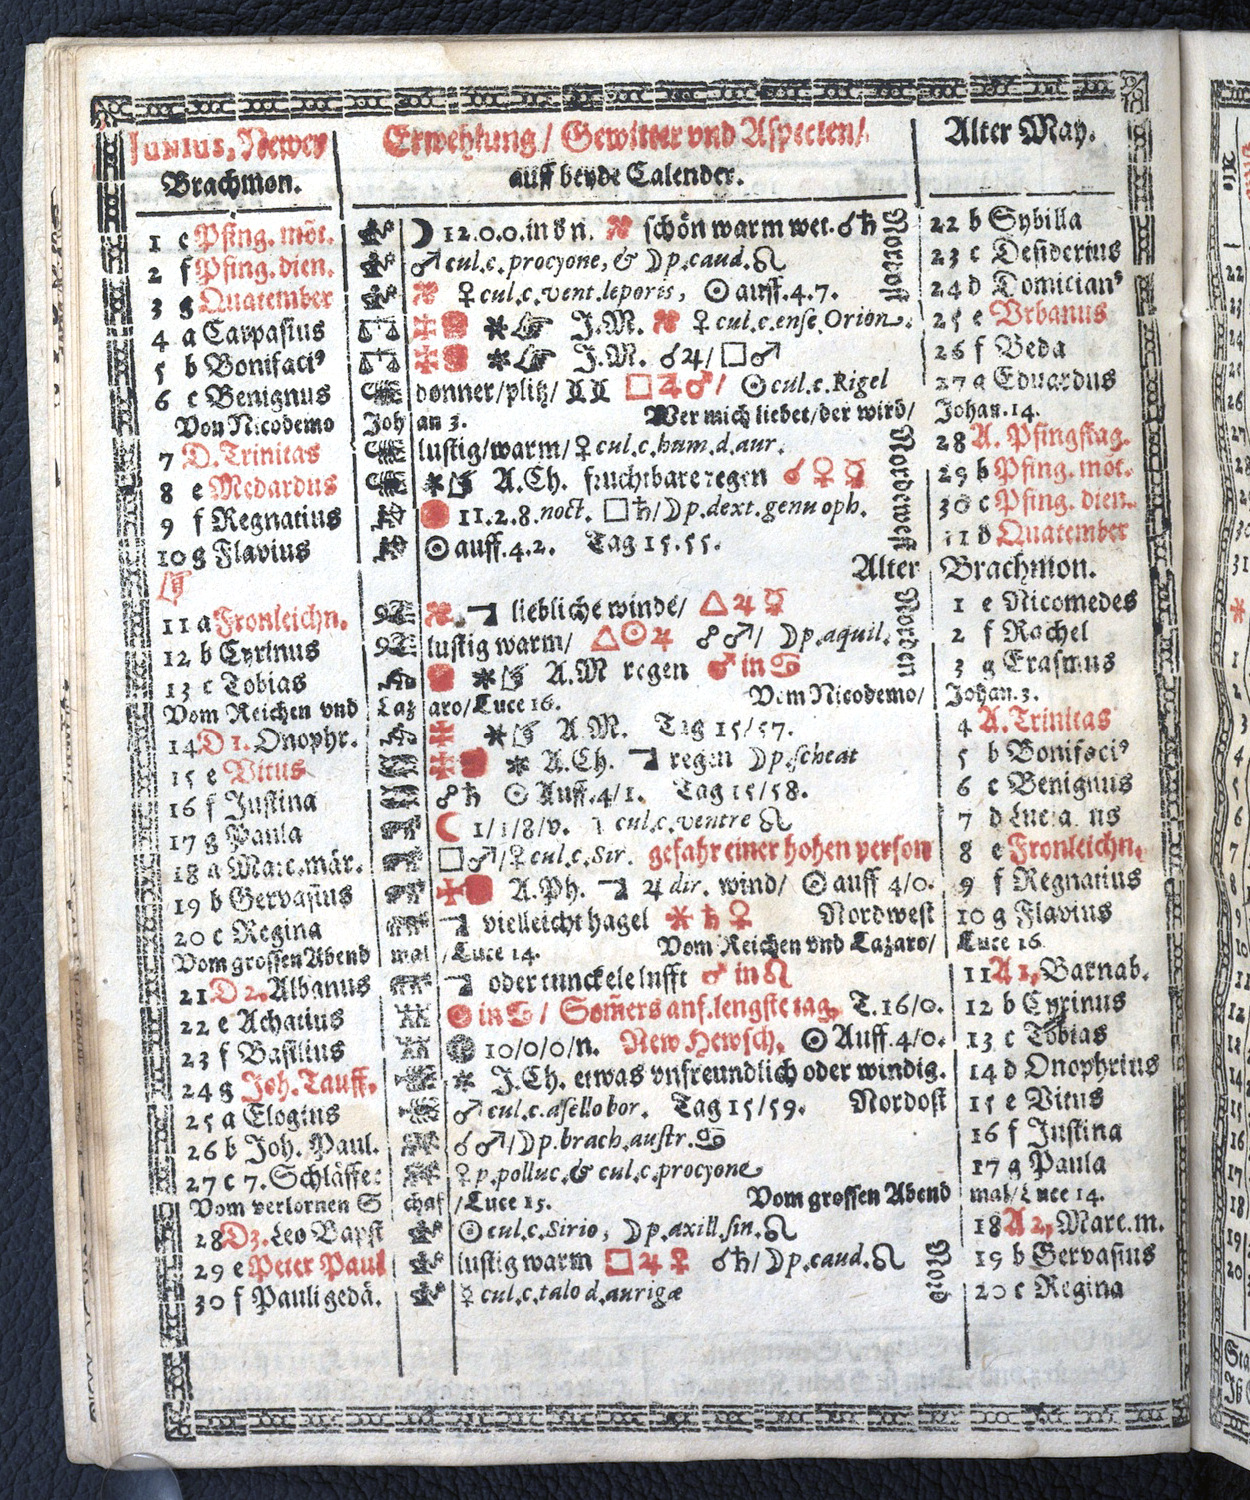 JUNIUS, Newer Erwehlung/ Gewitter vnd Aspecten/ Alter May.
Brachmon. auff beyde Calender.
1 e Pfing. mõt. ☽ 12.0.0. in ♉ n. schön warm wet. ☌♄ 22 b Sybilla
2 f Pfing. dien. ♂ cul.c. procyone, & ☽ p. caud. ♌ 23 c Desiderius
3 g Quatember ♀ cul.c. vent. leporis, ☉ auff. 4.7. 24 d Domicianꝰ
4 a Carpasius ✶ J.M. ♀ cul.c. ense Orion. 25 e Vrbanus
5 b Bonifaciꝰ ✶ J.M. ☌♃/ □♂ 26 f Beda
6 c Benignus donner/plitz/ □♃♂/ ☉ cul.c. Rigel 27 g Eduardus
Von Nicodemo Johan 3. Wer mich liebet/der wird/ Johan. 14.
7 D. Trinitas lustig/warm/ ♀ cul.c. hum. d. aur. 28 A. Pfingstag.
8 e Medardus ✶ A.Ch. fruchtbare regen ☌♀☿ 29 b Pfing. mõt.
9 f Regnatius 11.2.8. noct. □♄/☽ p. dext. genu oph. 30 c Pfing. dien.
10 g Flavius ☉ auff. 4.2. Tag 15.55. 31 d Quatember
Alter Brachmon.
11 a Fronleichn. liebliche winde/ △♃☿ 1 e Nicomedes
12 b Cyrinus lustig warm/ △☉♃ ☍♂/ ☽ p. aquil. 2 f Rachel
13 c Tobias ✶ A.M regen ♂ in ♋ 3 g Erasmus
Vom Reichen vnd Lazaro/Luce 16. Vom Nicodemo/ Johan. 3.
14 D 1. Onophr. ✶ A.M. Tag 15/57. 4 A. Trinitas
15 e Vitus ✶ A.Ch. regen ☽ p. scheat 5 b Bonifaciꝰ
16 f Justina ☍♄ ☉ Auff. 4/1. Tag 15/58. 6 c Benignus
17 g Paula ☾ 1/1/8/v. cul.c. ventre ♌ 7 d
18 a Marc. mär. □♂/♀ cul.c. Sir. gefahr einer hohen person 8 e Fronleichn.
19 b Gervasius A.Ph. ♃ dir. wind/ ☉ auff 4/0. 9 f Regnatius
20 c Regina vielleicht hagel ✶♄♀ Nordwest 10 g Flavius
Vom grossen Abendmal/Luce 14. Vom Reichen vnd Lazaro/ Luce 16
21 D 2. Albanus oder tunckele lufft ♂ in ♌ 11 A 1, Barnab.
22 e Achatius ☉ in ♋ / Som̃ers anf. lengste tag, T. 16/0. 12 b Cyrinus
23 f Basilius 10/0/0/n. New Hewsch. ☉ Auff. 4/0. 13 c Tobias
24 g Joh. Tauff. ✶ J.Ch. etwas vnfreundlich oder windig. 14 d Onophrius
25 a Elogius ♂ cul.c. asello bor. Tag 15/59. Nordost 15 e Vitus
26 b Joh. Paul. ☌♂/☽ p. brach. austr. ♋ 16 f Justina
27 c 7. Schläffer ♀ p. polluc. & cul.c. procyone 17 g Paula
Vom verlornen Schaf/Luce 15. Vom grossen Abendmal/Luce 14.
28 D 3. Leo Bapst ☉ cul.c. Sirio, ☽ p. axill. sin. ♌ 18 A 2, Marc. m.
29 e Peter Paul lustig warm □♃♀ ☌♄/ ☽ p. caud. ♌ 19 b Gervasius
30 f Pauli gedä. ☿ cul.c. talo d. aurigæ 20 c Regina